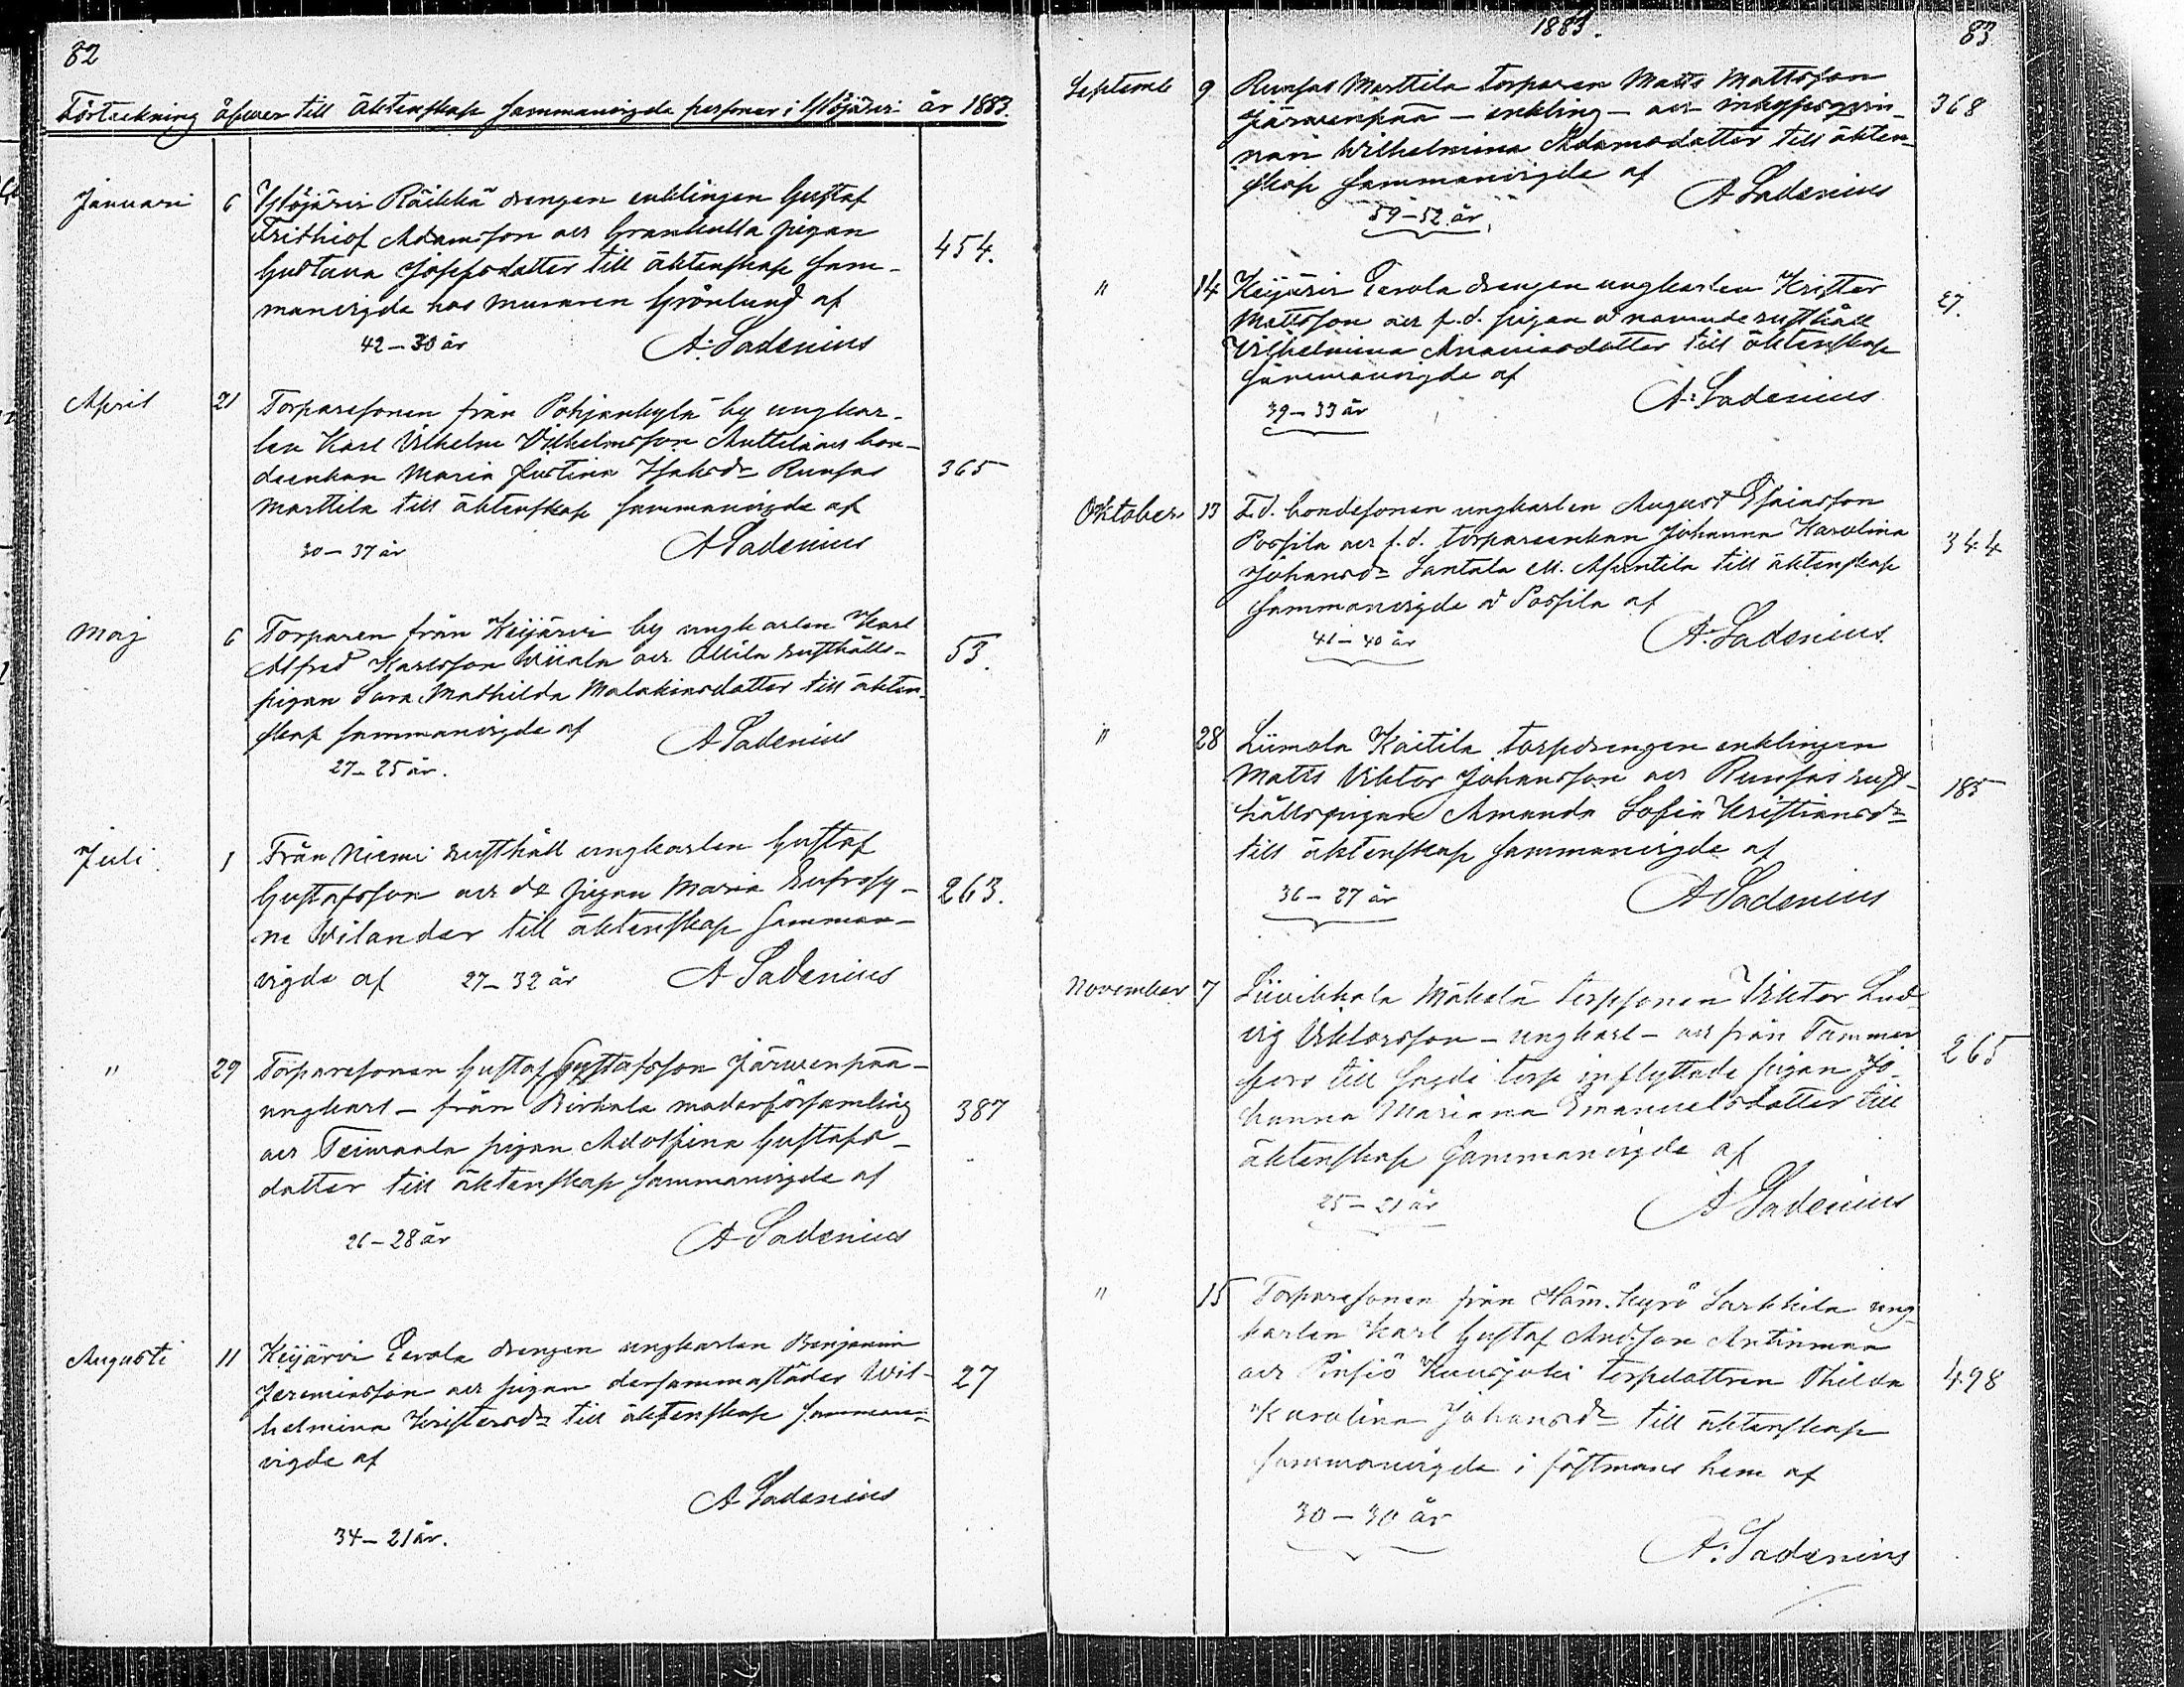 82
Förteckning öfwer till äktenskap sammanvigde personer i Ylöjärvi år 1883.
Januari 6 Ylöjärvi Räikkä drengen enklingen Gustaf
Frithiof Adamsson och Grankulla pigan
Gustava Josefsdotter till äktenskap sam-
manvigde hos muraren Grönlund af
454.
42 – 30 år A. Ladenius
April 21 Torparesonen från Pohjankylä by ungkar-
len Karl Vilhelm Vilhelmsson Anttila och bon-
deenkan Maria Justina Isaksdr Runsas
Marttila till äktenskap sammanvigde af
365
30 – 37 år A Ladenius
Maj 6 Torparen från Keijärvi by ungkarlen Karl
Alfred Karlsson och Ollila rusthålls-
pigan Sara Mathilda Malakiasdotter till äkten-
skap sammanvigde af A Ladenius
53.
27 – 25 år.
Juli 1 Från Niemi rusthåll ungkarlen Gustaf
Gustafsson och do pigan Maria Eufrosy-
ne Wilander till äktenskap samman-
vigde af 27 – 32 år A Ladenius
263.
" 29 Torparesonen Gustaf Gustafsson Järwenpää –
ungkarl – från Birkala moderförsamling
och Teivaala pigan Adolfina Gustafs-
dotter till äktenskap sammanvigde af
387
26 – 28 år A Ladenius
Augusti 11 Keijärvi Eerola drengen ungkarlen Benjamin
Jeremiasson och pigan dersammastädes Wil-
helmina Kristersdr till äktenskap samman-
vigde af
27
A Ladenius
34 – 21 år.
1883.
83
Septemb 9 Runsas Marttila torparen Matts Mattsson
Järwenpää – enkling – och
nan Wilhelmina Adamsdotter till äkten-
skap sammanvigde af A Ladenius
368
59 – 52 år.
" 14 Keijärvi Eerola drengen ungkarlen Krister
Mattsson och f.d. pigan å nämnde rusthåll
Vilhelmina Ananiasdotter till äktenskap
sammanvigde af A. Ladenius
27.
39 – 33 år
Oktober 13 F.d. bondesonen ungkarlen August Esaiasson
Possila och f.d. torpareenkan Johanna Karolina
Johansdr Lantala till äktenskap
sammanvigde å Possila af
344
41 – 40 år A. Ladenius.
" 28 Liimola Kaitila torpdrengen enklingen
Matts Viktor Johansson och Runsas rust-
hållspigan Amanda Sofia Kristiansdr
till äktenskap sammanvigde af
185
36 – 27 år A Ladenius
November 7 Liivikkala Mäkelä torpsonen Viktor Lud-
vig Viktorsson – ungkarl – och från Tammer
fors till sagde torp inflyttade pigan Jo-
hanna Mariana Emanuelsdotter till
äktenskap sammanvigde af
265
25 – 21 år A Ladenius
" 15 Torparesonen från Ham. kyrö Sarkkila ung-
karlen Karl Gustaf Andsson Antinmaa
och Pinsiö Kuusjoki torpdottren Thilda
Karolina Johansdr till äktenskap
sammanvigde i fästmans hem af
498
30 – 30 år
A. Ladenius